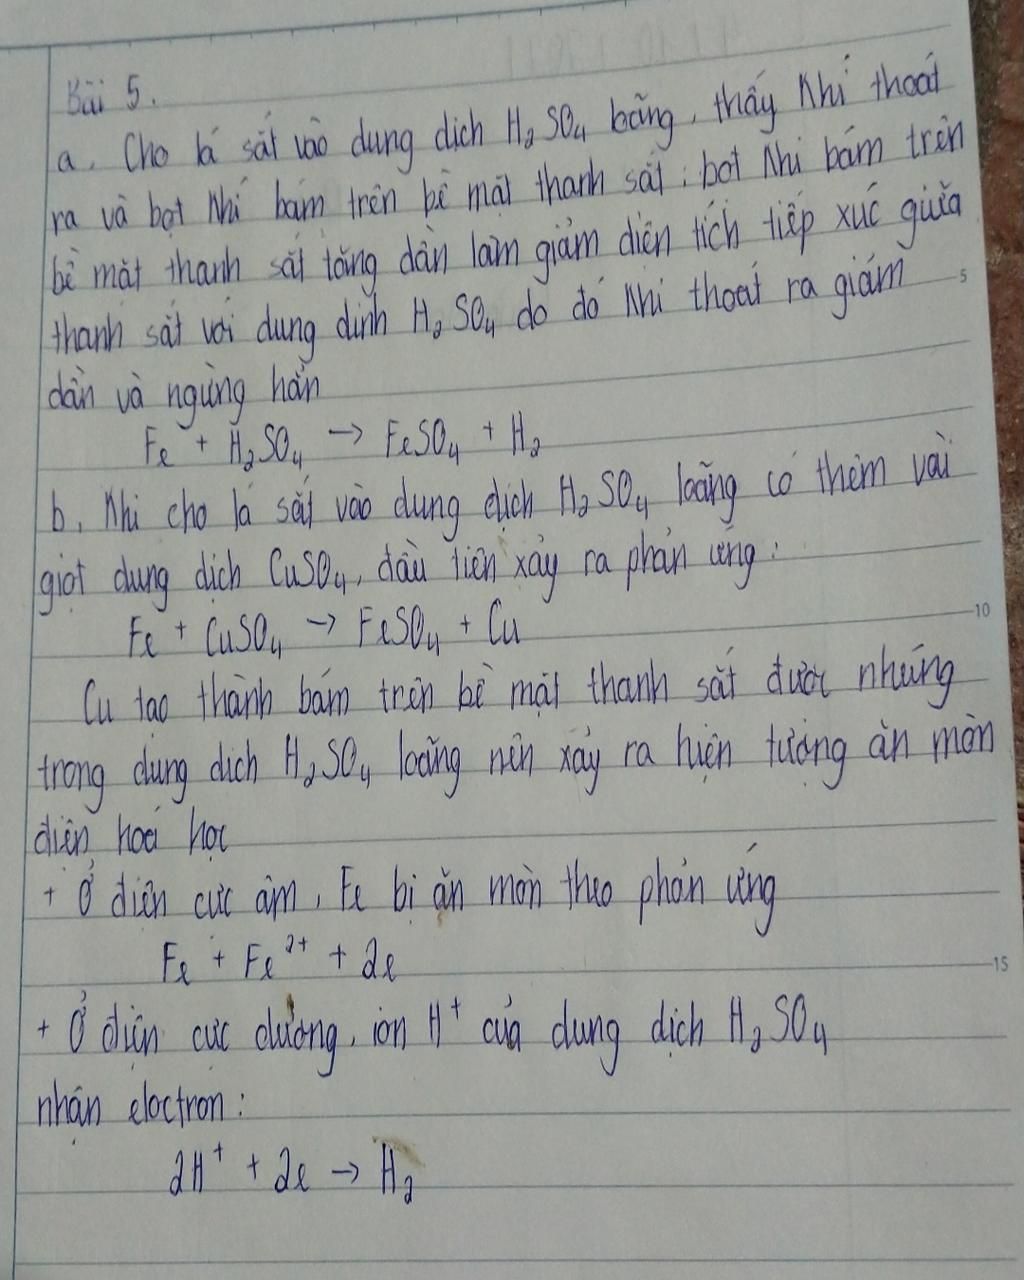 Bài 5.
a. Cho lá sắt vào dung dịch H₂SO₄ loãng, thấy khí thoát
ra và bọt khí bám trên bề mặt thanh sắt; bọt khí bám trên
bề mặt thanh sắt tăng dần làm giảm diện tích tiếp xúc giữa
thanh sắt với dung dịnh H₂SO₄ do đó khí thoát ra giảm
5
dần và ngừng hẳn
Fe + H₂SO₄ → FeSO₄ + H₂
b, Khi cho lá sắt vào dung dịch H₂SO₄ loãng có thêm vài
giọt dung dịch CuSO₄, đầu tiên xảy ra phản ứng:
10
Fe + CuSO₄ → FeSO₄ + Cu
Cu tạo thành bám trên bề mặt thanh sắt được nhúng
trong dung dịch H₂SO₄ loãng nên xảy ra hiện tượng ăn mòn
điện hoá học
+ Ở điện cực âm, Fe bị ăn mòn theo phản ứng
Fe + Fe²⁺ + 2e
15
+ Ở điện cực dương, ion H⁺ của dung dịch H₂SO₄
nhận eloctron:
2H⁺ + 2e → H₂